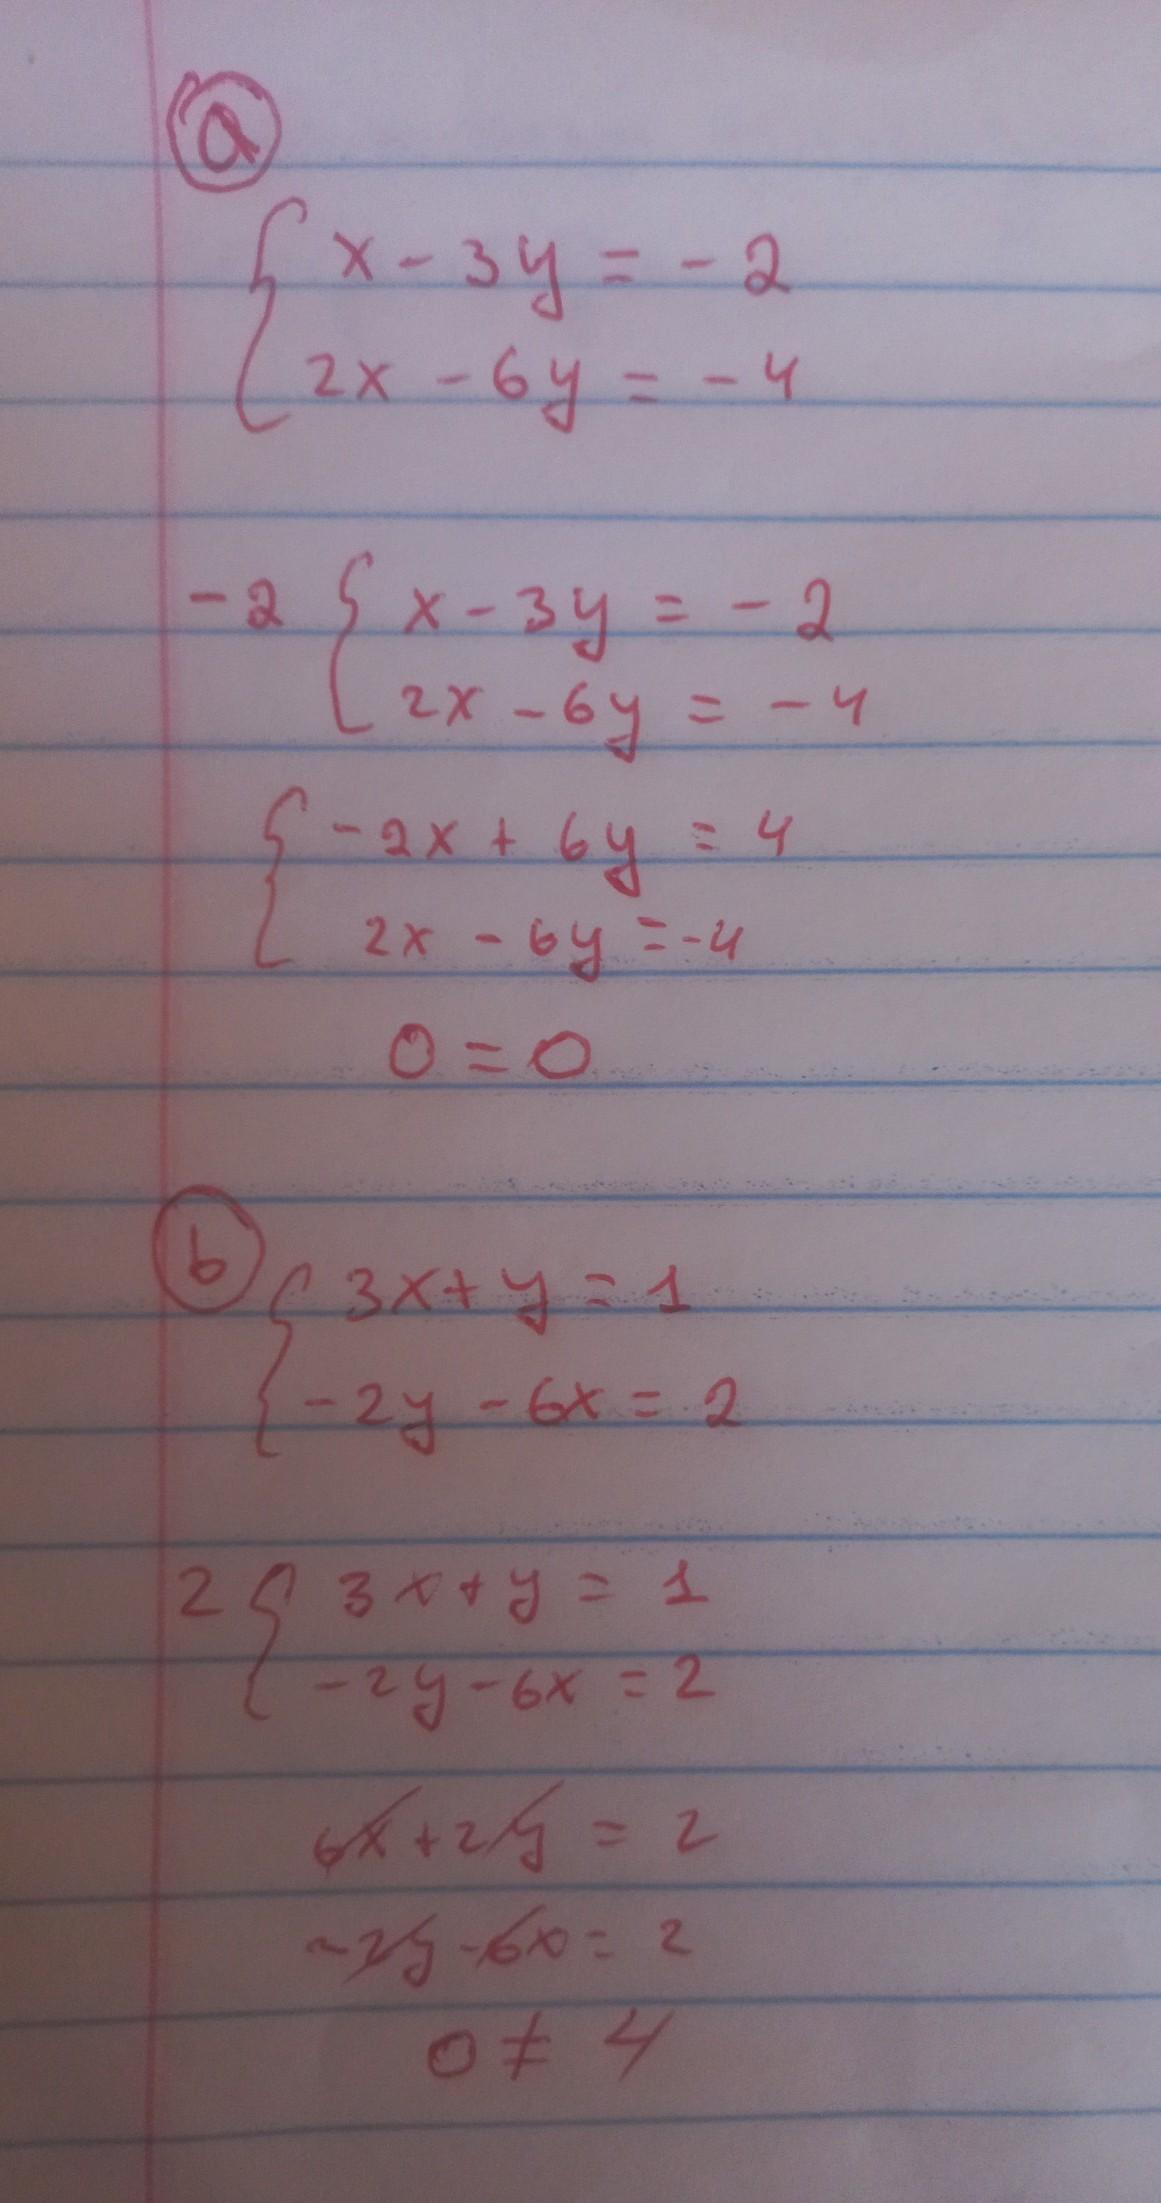 a
x - 3y = - 2
2x - 6y = - 4
-2 { x - 3y = - 2
2x - 6y = - 4
-2x + 6y = 4
2x - 6y = -4
0 = 0
b
3x + y = 1
-2y - 6x = 2
2 { 3x + y = 1
-2y - 6x = 2
6x + 2y = 2
-2y - 6x = 2
0 ≠ 4